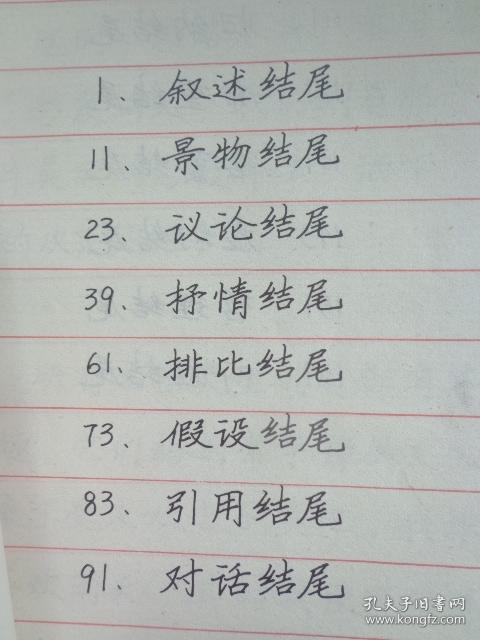 1、叙述结尾
11、景物结尾
23、议论结尾
39、抒情结尾
61、排比结尾
73、假设结尾
83、引用结尾
91、对话结尾
孔夫子旧书网
www.kongfz.com